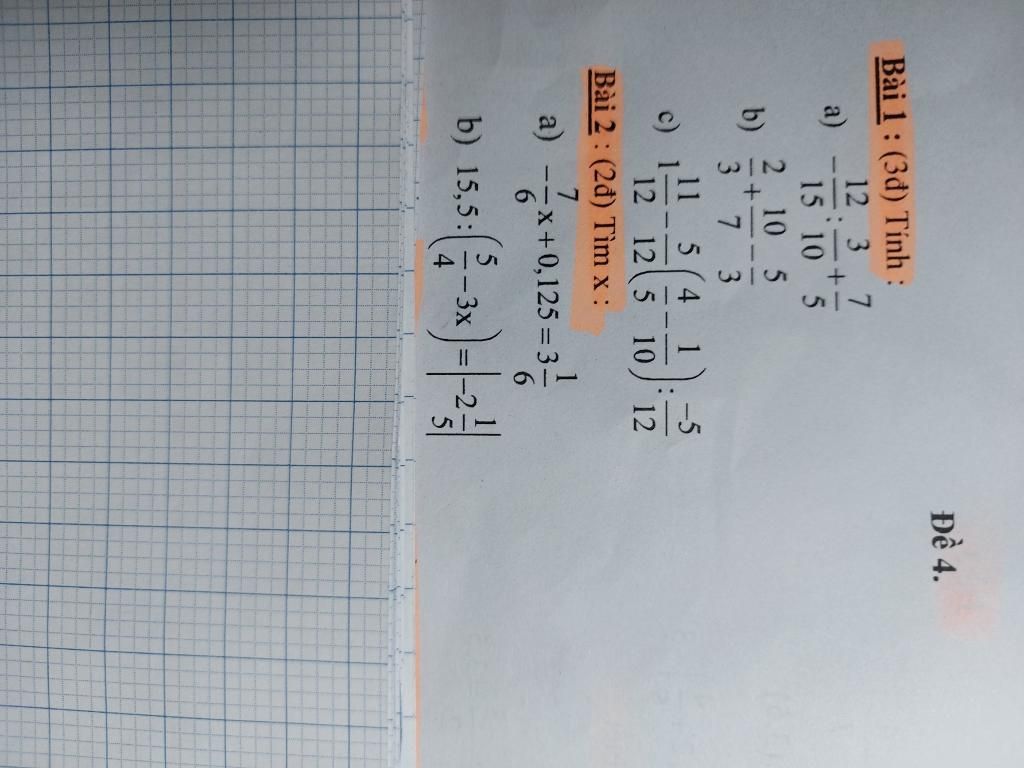 Đề 4.
Bài 1 : (3đ) Tính :
a) $-\frac{12}{15}:\frac{3}{10}+\frac{7}{5}$
b) $\frac{2}{3}+\frac{10}{7}-\frac{5}{3}$
c) $1\frac{11}{12}-\frac{5}{12}\left(\frac{4}{5}-\frac{1}{10}\right):\frac{-5}{12}$
Bài 2 : (2đ) Tìm x :
a) $-\frac{7}{6}x+0,125=3\frac{1}{6}$
b) $15,5:\left(\frac{5}{4}-3x\right)=\left|-2\frac{1}{5}\right|$